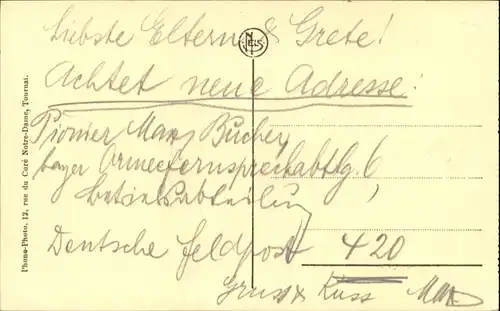 Liebste Eltern & Grete!
NELS
Achtet neue Adresse!
Pionier Max Bucher
bayer Armeefernsprechabtlg. 6
Betriebsabteilung
Deutsche Feldpost 420
Gruss & Kuss Max
Phono-Photo, 12, rue du Curé Notre-Dame, Tournai.